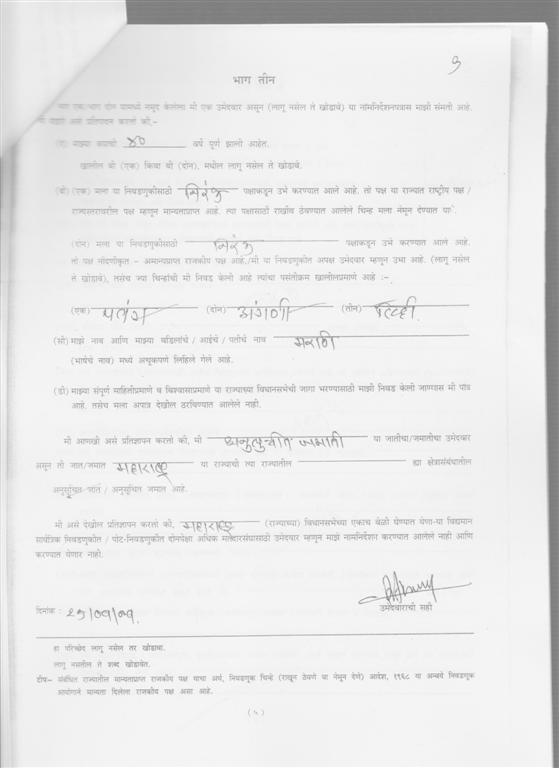 ९
भाग तीन
एक/भाग दोन यामध्ये नमूद केलेला मी एक उमेदवार असून (लागू नसेल ते खोडावे) या नामनिर्देशनपत्रास माझी संमती आहे.
असे प्रतिपादन करतो की,-
(ए) माझ्या वयाची ४० वर्षे पूर्ण झाली आहेत.
खालील बी (एक) किंवा बी (दोन), मधील लागू नसेल ते खोडावे.
(बी) (एक) मला या निवडणुकीसाठी निरंक पक्षाकडून उभे करण्यात आले आहे. तो पक्ष या राज्यात राष्ट्रीय पक्ष /
राज्यस्तरावरील पक्ष म्हणून मान्यताप्राप्त आहे. त्या पक्षासाठी राखीव ठेवण्यात आलेले चिन्ह मला नेमून देण्यात
(दोन) मला या निवडणुकीसाठी निरंक पक्षाकडून उभे करण्यात आले आहे.
तो पक्ष नोंदणीकृत - अमान्यप्राप्त राजकीय पक्ष आहे./मी या निवडणुकीत अपक्ष उमेदवार म्हणून उभा आहे. (लागू नसेल
ते खोडावे), तसेच ज्या चिन्हांची मी निवड केली आहे त्यांचा पसंतीक्रम खालीलप्रमाणे आहे :-
(एक) पतंग (दोन) (तीन)
(सी) माझे नाव आणि माझ्या वडिलांचे / आईचे / पतीचे नाव मराठी
(भाषेचे नाव) मध्ये अचूकपणे लिहिले गेले आहे.
(डी) माझ्या संपूर्ण माहितीप्रमाणे व विश्वासाप्रमाणे या राज्याच्या विधानसभेची जागा भरण्यासाठी माझी निवड केली जाण्यास मी पात्र
आहे. तसेच मला अपात्र देखील ठरविण्यात आलेले नाही.
मी आणखी असे प्रतिज्ञापन करतो की, मी अनुसुचीत जमाती या जातीचा/जमातीचा उमेदवार
असून ती जात/जमात महाराष्ट्र या राज्याची त्या राज्यातील ह्या क्षेत्रासंबंधातील
अनुसूचित जाती / अनुसूचित जमात आहे.
मी असे देखील प्रतिज्ञापन करतो की, महाराष्ट्र (राज्याच्या) विधानसभेच्या एकाच वेळी घेण्यात येणा-या विद्यमान
सार्वत्रिक निवडणुकीत / पोट-निवडणुकीत दोनपेक्षा अधिक मतदारसंघासाठी उमेदवार म्हणून माझे नामनिर्देशन करण्यात आलेले नाही आणि
करण्यात येणार नाही.
दिनांक : २५/०९/०९
उमेदवाराची सही
हा परिच्छेद लागू नसेल तर खोडावा.
लागू नसतील ते शब्द खोडावेत.
टीप- संबंधित राज्यातील मान्यताप्राप्त राजकीय पक्ष याचा अर्थ, निवडणूक चिन्हे (राखून ठेवणे या नेमून देणे) आदेश, १९६८ या अन्वये निवडणूक
आयोगाने मान्यता दिलेला राजकीय पक्ष असा आहे.
(५)